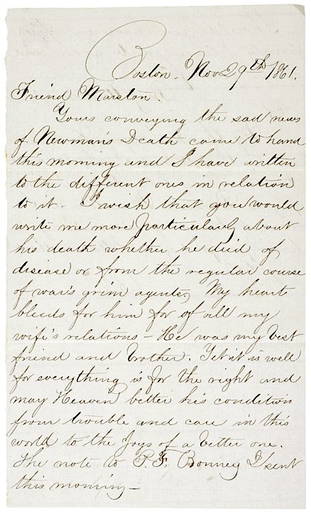 Boston. Nov 29th 1861.
Friend Marston.
Yours conveying the sad news
of Newman's Death came to hand
this morning and I have written
to the different ones in relation
to it. I wish that you would
write me more particularly about
his death whether he died of
disease or from the regular course
of war's grim agents, My heart
bleeds for him for of all my
wife's relations – He was my best
friend and brother. Yet it is well
for everything is for the right and
may Heaven better his condition
from trouble and care in this
world to the joys of a better one.
The note to P. F. Bonney I sent
this morning –